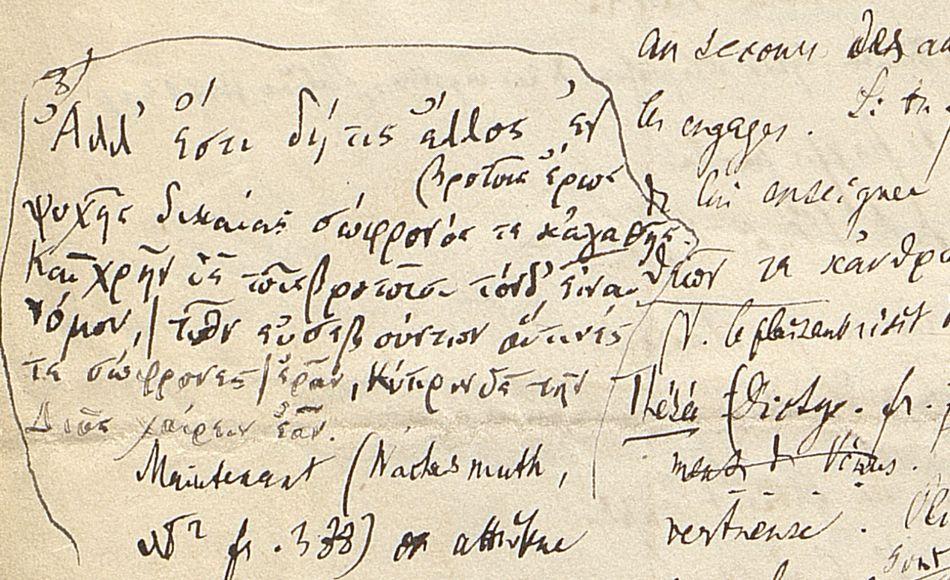 3)
Ἀλλ’ ἔστι δή τις ἄλλος ἐν
βροτοῖς ἔρως
ψυχῆς δικαίας σώφρονός τε κἀγαθῆς.
Καὶ χρῆν δὲ τοῖς βροτοῖσι τόνδ’ εἶναι
νόμον, / τῶν εὐσεβούντων οἵτινές
τε σώφρονες / ἐρᾶν, Κύπριν δὲ τὴν
Διὸς χαίρειν ἐᾶν.
Maintenant (Nachsmuth,
fr. 388) on attribue
au secours des
les engager. Si
lui enseigner
θεῶν τε κἀνθρώ
N. le
Thésée (Dictys. fr.
ment d Vénus.
vertueuse.
sont